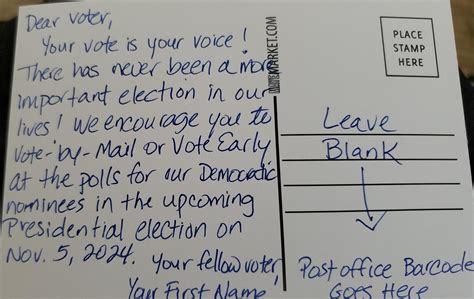 Dear voter,
Your vote is your voice!
There has never been a more
important election in our
lives! We encourage you to
Vote-by-Mail or Vote Early
at the polls for our Democratic
nominees in the upcoming
Presidential election on
Nov. 5, 2024.
Your fellow voter,
Your First Name
MARKET.COM
PLACE
STAMP
HERE
Leave
Blank
Post office Barcode
Goes Here